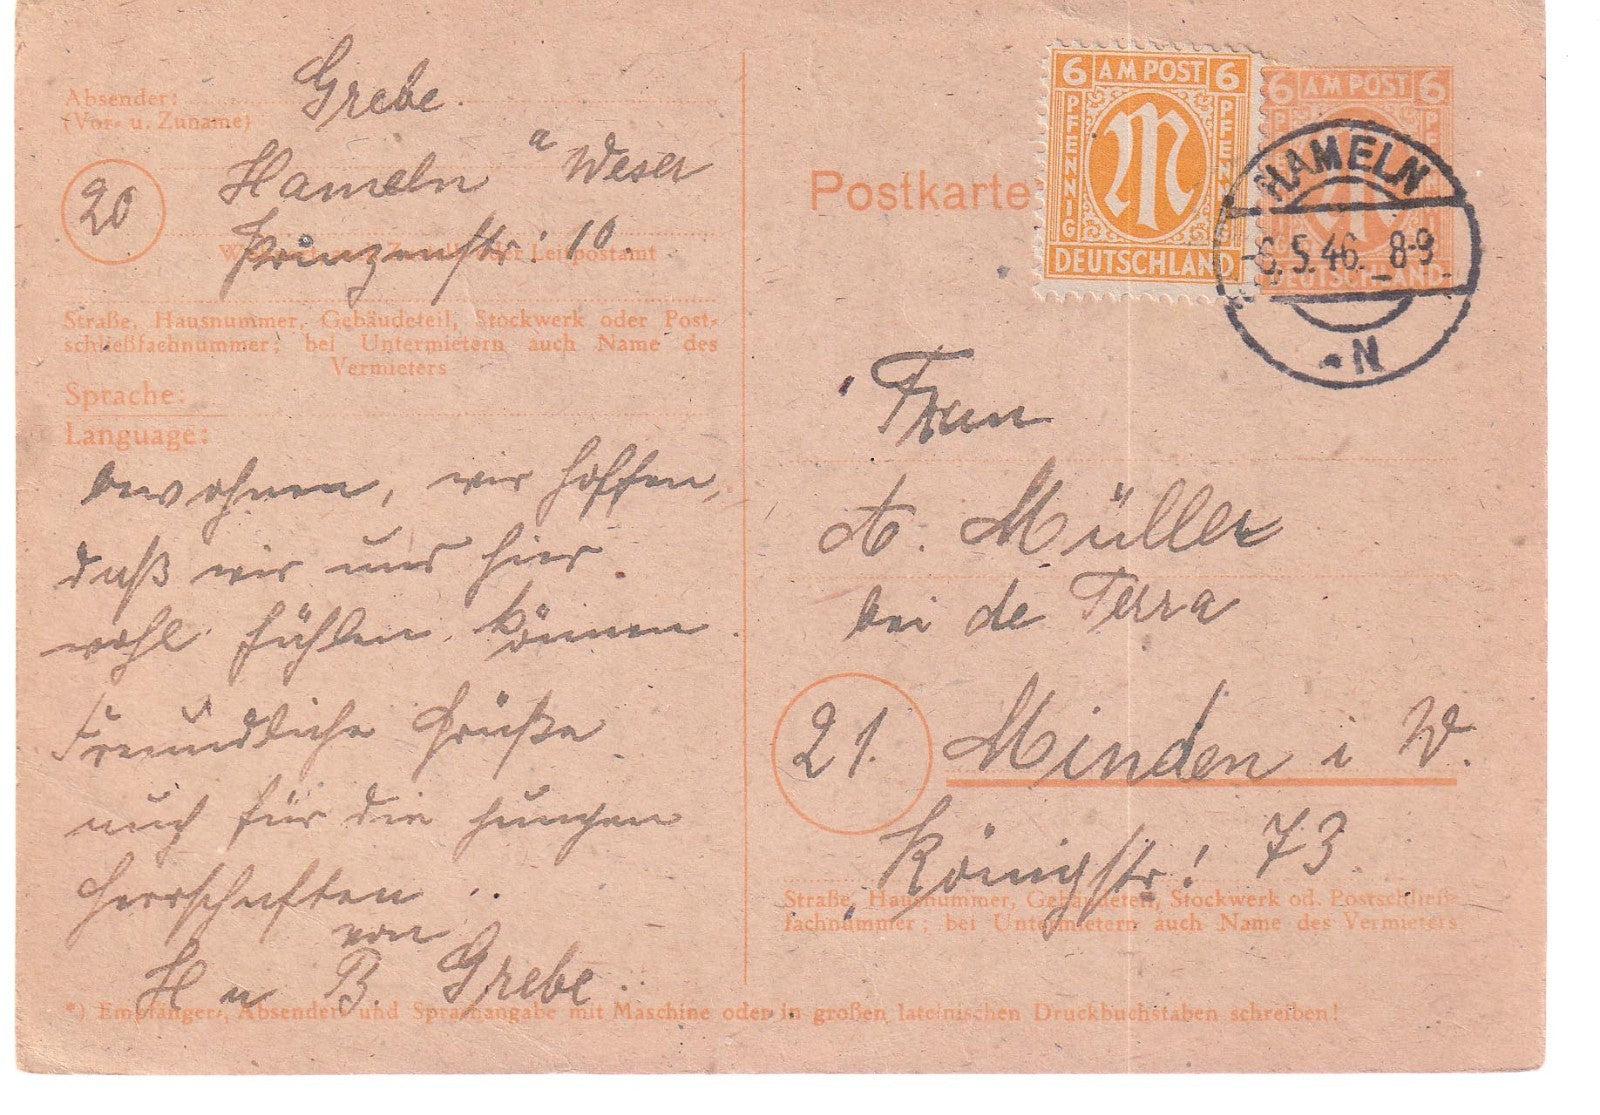 Absender:
(Vor- u. Zuname)
Grebe.
20
Hameln a Weser
Prinzenstr. 10.
Straße, Hausnummer, Gebäudeteil, Stockwerk oder Post-
schließfachnummer; bei Untermietern auch Name des
Vermieters
Sprache:
Language:
bewohnen, wir hoffen,
daß wir uns hier
wohl fühlen können.
Freundliche Grüße
auch für die jungen
Herrschaften ..
von
H u B. Grebe.
Postkarte
6 AM POST 6
PFENNIG PFENNIG
DEUTSCHLAND
6 AM POST 6
DEUTSCHLAND
HAMELN
-6.5.46. 8-9
N
Frau
A. Müller
bei de Terra
21. Minden i W.
Königstr. 73
Straße, Hausnummer, Gebäudeteil, Stockwerk od. Postschließ-
fachnummer; bei Untermietern auch Name des Vermieters
*) Empfänger-, Absender- und Sprachangabe mit Maschine oder in großen lateinischen Druckbuchstaben schreiben!